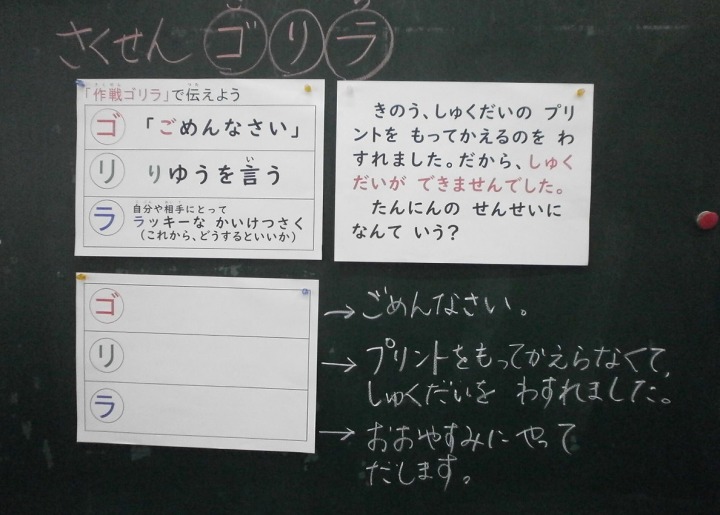 さくせん ゴリラ
「作戦ゴリラ」で伝えよう
ゴ 「ごめんなさい」
リ りゆうを言う
ラ 自分や相手にとって
ラッキーな かいけつさく
(これから、どうするといいか)
きのう、しゅくだいの プリ
ントを もってかえるのを わ
すれました。だから、しゅく
だいが できませんでした。
たんにんの せんせいに
なんて いう?
ゴ →ごめんなさい。
リ →プリントをもってかえらなくて、
しゅくだいを わすれました。
ラ →おおやすみに やって
だします。